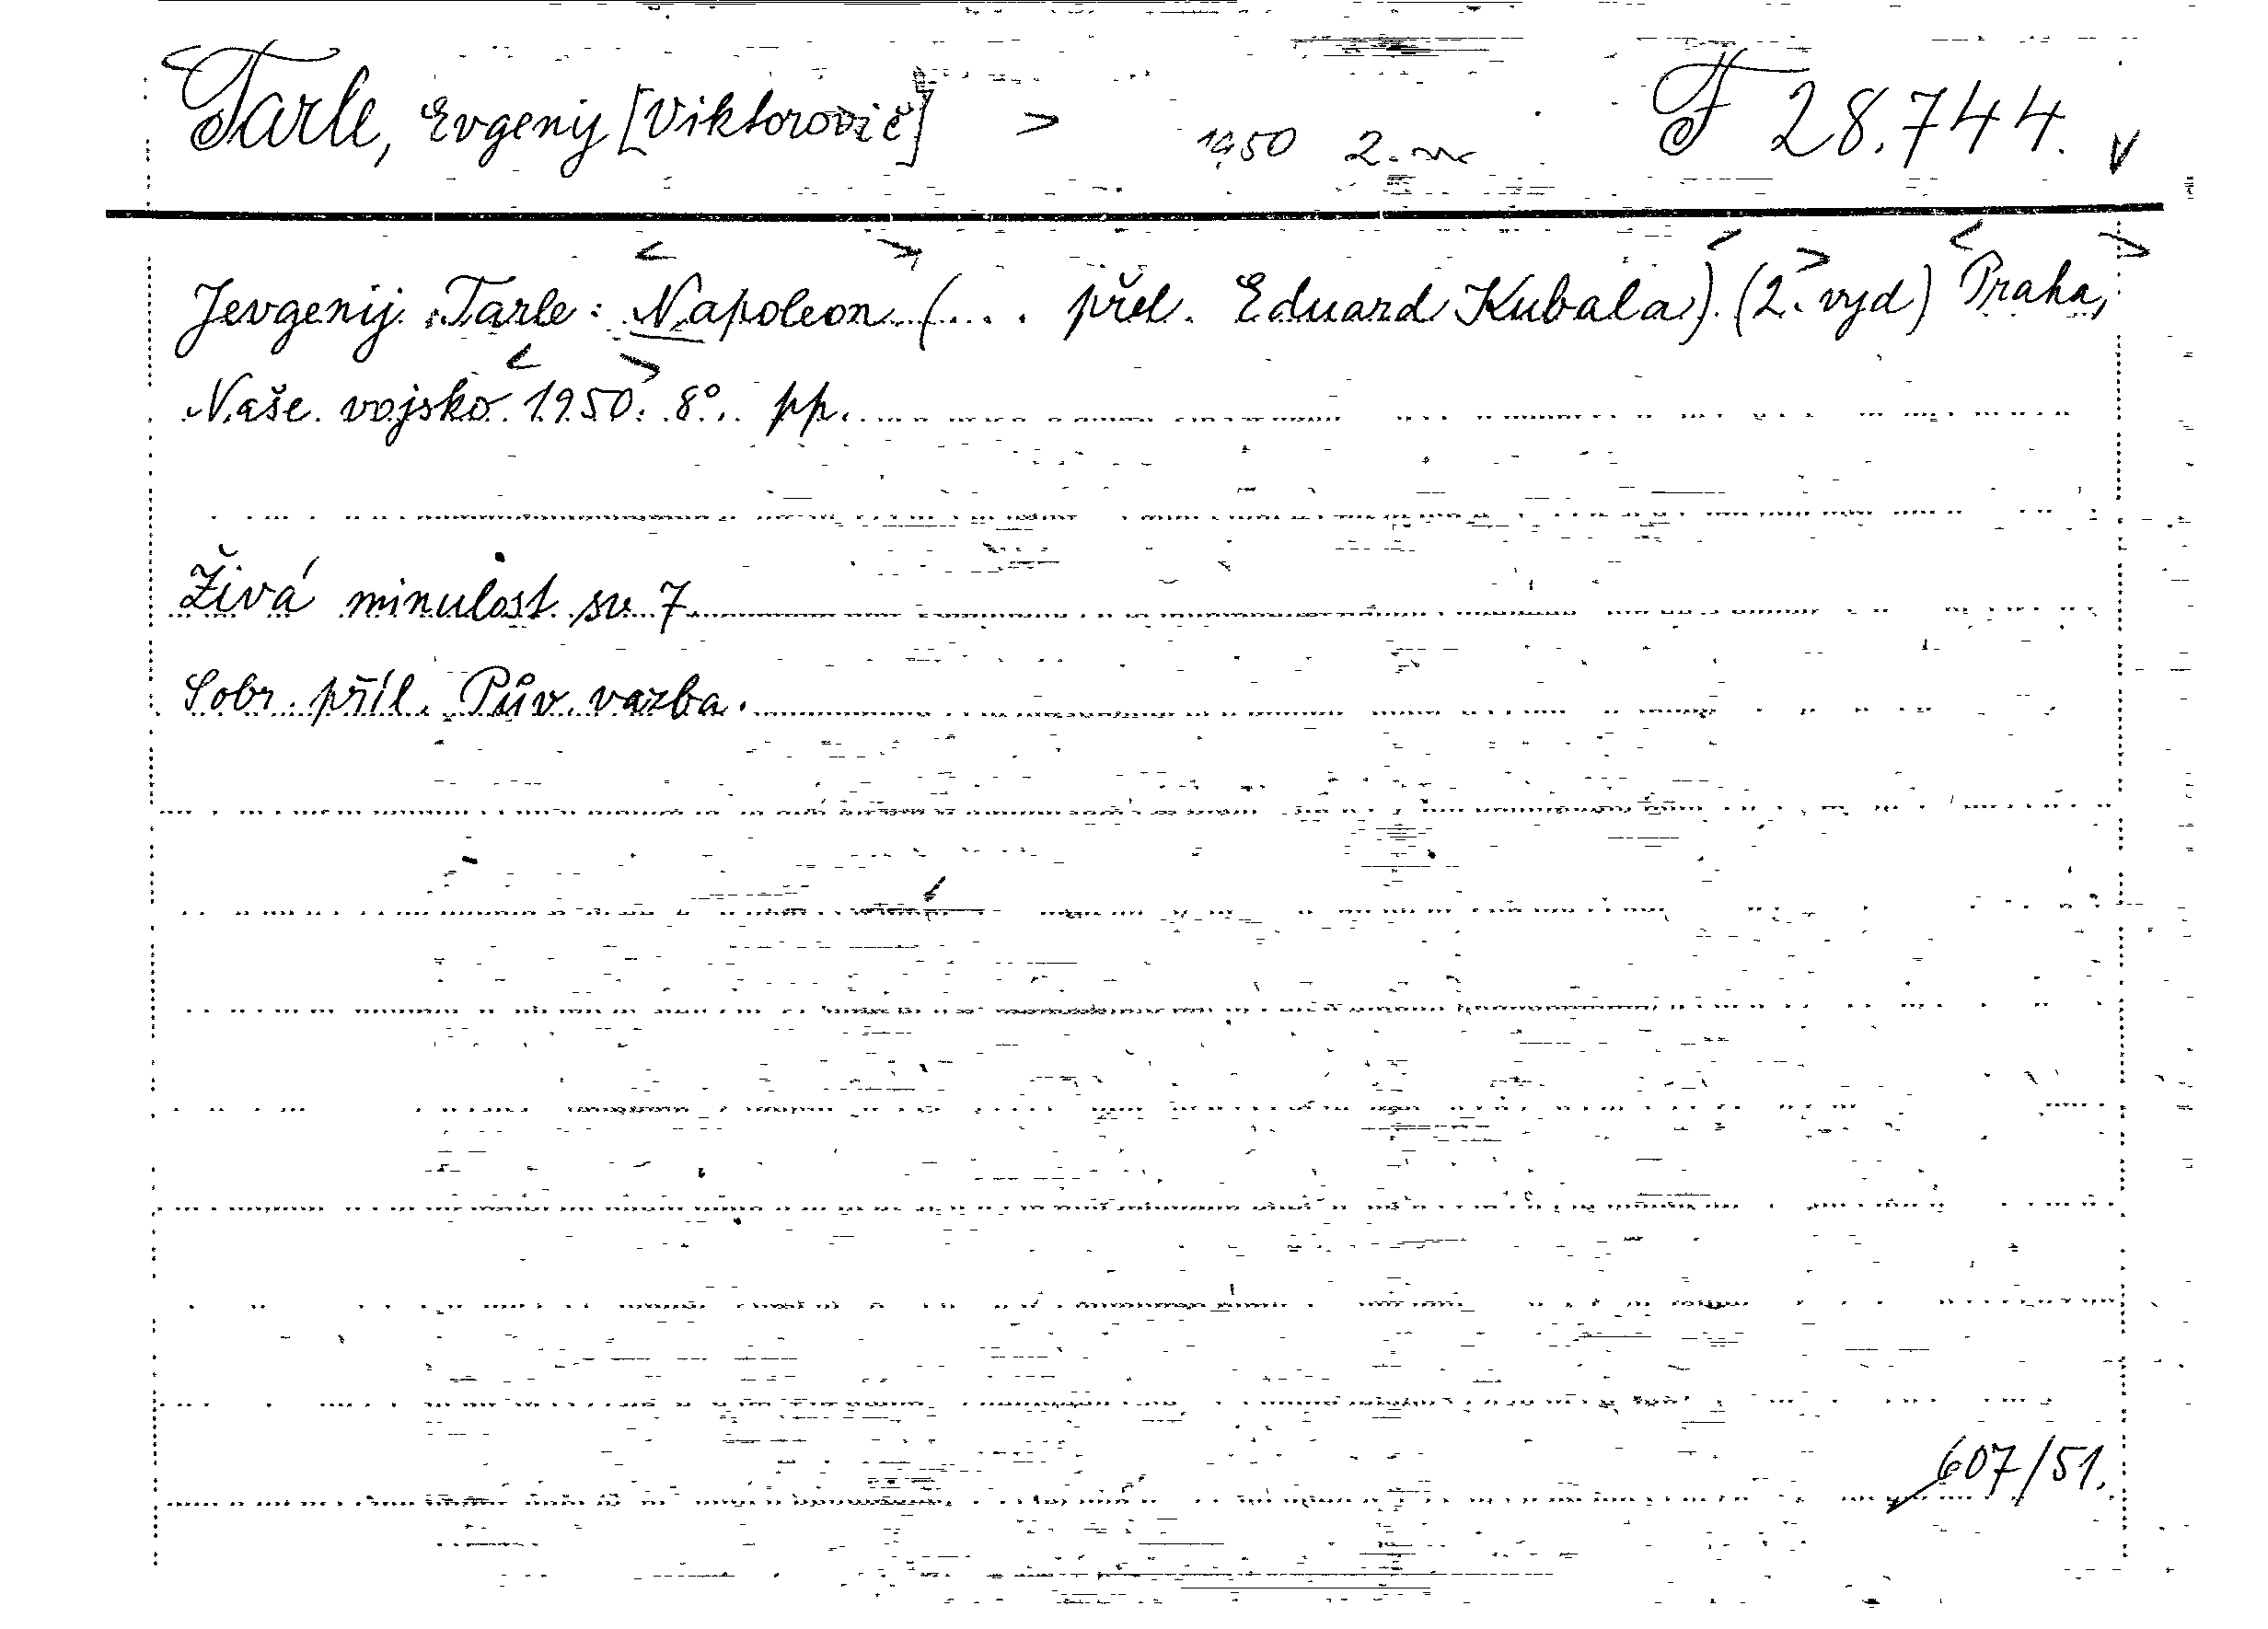 Tarle, Evgenij [Viktorovič] > 1950 2. F 28.744. v
Jevgenij Tarle: <Napoleon> (... přel. Eduard Kubala). <(2.> vyd) <Praha,>
Naše vojsko <1950>. 8°. pp.
Živá minulost sv. 7
Sobr. příl. Pův. vazba.
607/51.